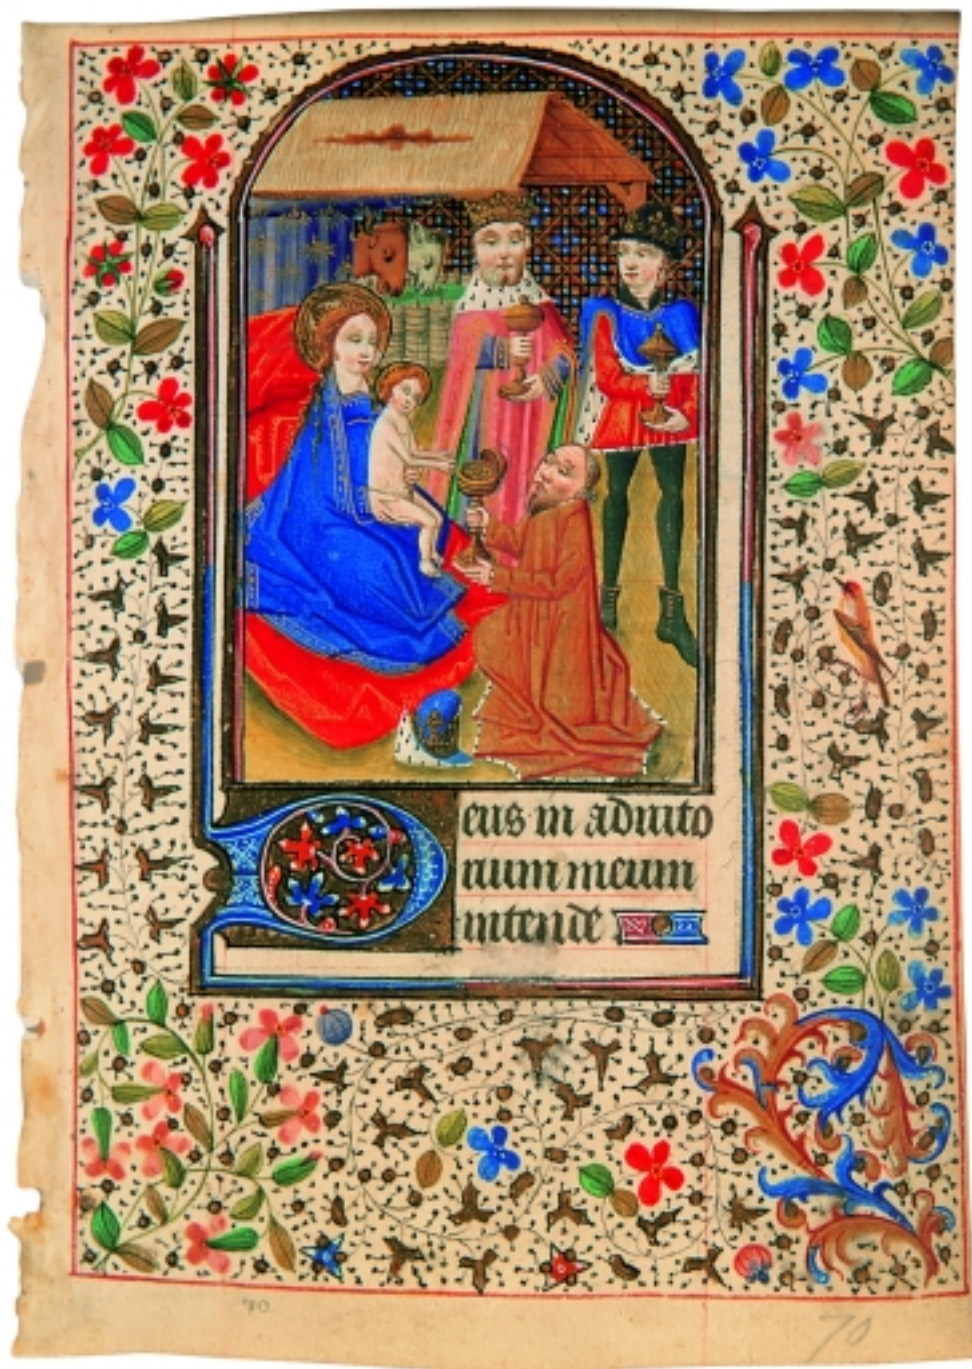 Deus in adiuto
rium meum
intende
70
70